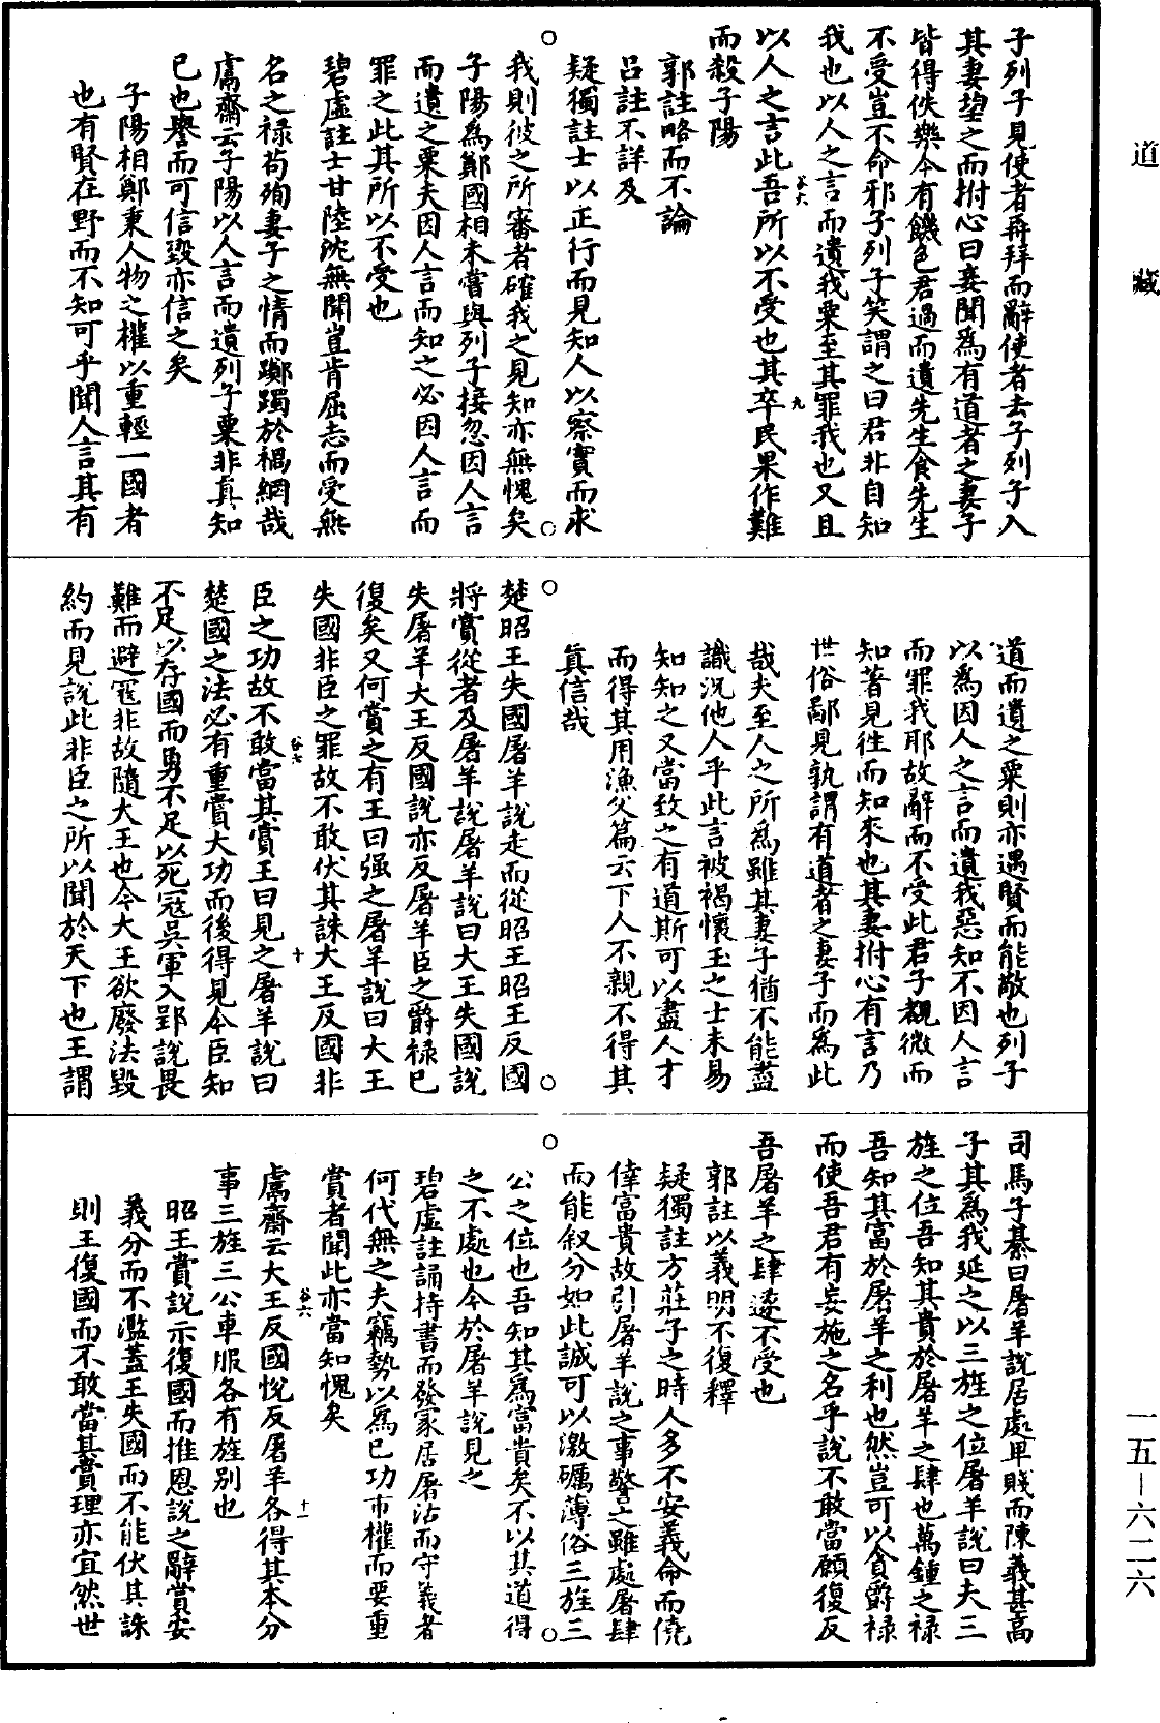 道藏
子列子見使者再拜而辭使者去子列子入
其妻望之而拊心曰妾聞為有道者之妻子
皆得佚樂今有饑色君過而遺先生食先生
不受豈不命邪子列子笑謂之曰君非自知
我也以人之言而遺我粟至其罪我也又且
以人之言此吾所以不受也其卒民果作難
而殺子陽
郭註略而不論
呂註不詳及
疑獨註士以正行而見知人以察實而求
我則彼之所審者確我之見知亦無愧矣
子陽為鄭國相未嘗與列子接忽因人言
而遺之粟夫因人言而知之必因人言而
罪之此其所以不受也
碧虛註士甘陸沈無聞豈肯屈志而受無
名之祿苟殉妻子之情而躑躅於禍網哉
鬳齋云子陽以人言而遺列子粟非真知
已也譽而可信毀亦信之矣
子陽相鄭秉人物之權以重輕一國者
也有賢在野而不知可乎聞人言其有
道而遺之粟則亦遇賢而能敬也列子
以為因人之言而遺我惡知不因人言
而罪我耶故辭而不受此君子覩微而
知著見徃而知來也其妻拊心有言乃
世俗鄙見孰謂有道者之妻子而為此
哉夫至人之所為雖其妻子猶不能盡
識況他人乎此言被褐懷玉之士未易
知知之又當致之有道斯可以盡人才
而得其用漁父篇云下人不親不得其
真信哉
楚昭王失國屠羊說走而從昭王昭王反國
將賞從者及屠羊說屠羊說曰大王失國說
失屠羊大王反國說亦反屠羊臣之爵祿已
復矣又何賞之有王曰强之屠羊說曰大王
失國非臣之罪故不敢伏其誅大王反國非
臣之功故不敢當其賞王曰見之屠羊說曰
楚國之法必有重賞大功而後得見今臣知
不足以存國而勇不足以死寇吳軍入郢說畏
難而避寇非故隨大王也今大王欲廢法毀
約而見說此非臣之所以聞於天下也王謂
司馬子綦曰屠羊說居處卑賤而陳義甚高
子其為我延之以三旌之位屠羊說曰夫三
旌之位吾知其貴於屠羊之肆也萬鍾之祿
吾知其富於屠羊之利也然豈可以貪爵祿
而使吾君有妄施之名乎說不敢當願復反
吾屠羊之肆遂不受也
郭註以義明不復釋
疑獨註方莊子之時人多不安義命而僥
倖富貴故引屠羊說之事警之雖處屠肆
而能叙分如此誠可以激礪薄俗三旌三
公之位也吾知其為富貴矣不以其道得
之不處也今於屠羊說見之
碧虛註誦持書而發冢居屠沽而守義者
何代無之夫竊勢以為已功市權而要重
賞者聞此亦當知愧矣
鬳齋云大王反國悅反屠羊各得其本分
事三旌三公車服各有旌別也
昭王賞說示復國而推恩說之辭賞安
義分而不濫蓋王失國而不能伏其誅
則王復國而不敢當其賞理亦宜然世
一五－六二六